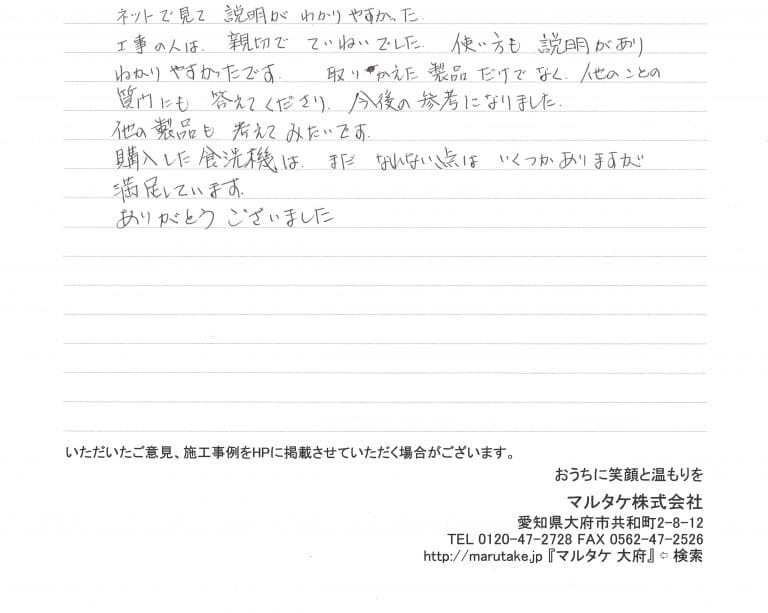 ネットで見て 説明が わかりやすかった.
工事の人は. 親切で ていねいでした. 使い方も 説明があり
わかりやすかったです. 取りかえた製品だけでなく. 他のことの
質問にも 答えてくださり. 今後の参考になりました.
他の製品も 考えてみたいです.
購入した食洗機は. まだ なれない点は いくつかありますが
満足しています.
ありがとう ございました
いただいたご意見、施工事例をHPに掲載させていただく場合がございます。
おうちに笑顔と温もりを
マルタケ株式会社
愛知県大府市共和町2-8-12
TEL 0120-47-2728 FAX 0562-47-2526
http://marutake.jp『マルタケ 大府』⇦ 検索